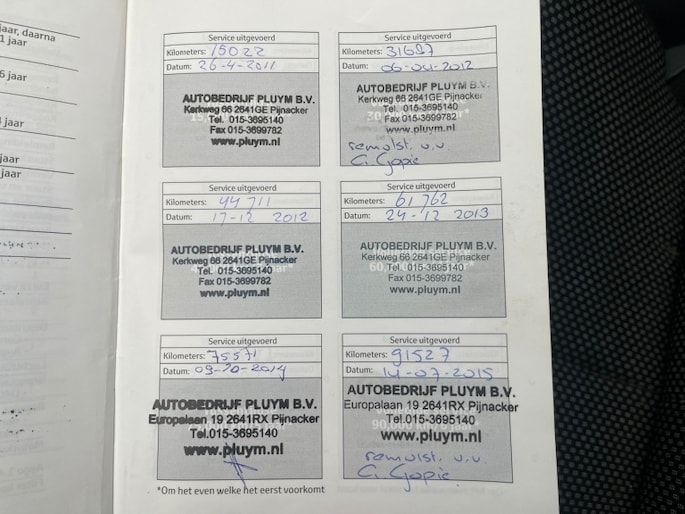 jaar, daarna
1 jaar
6 jaar
jaar
jaar
jaar
Service uitgevoerd
Kilometers: 15022
Datum: 26-4-2011
AUTOBEDRIJF PLUYM B.V.
Kerkweg 66 2641GE Pijnacker
Tel. 015-3695140
Fax 015-3699782
www.pluym.nl
Service uitgevoerd
Kilometers: 31687
Datum: 06-04-2012
AUTOBEDRIJF PLUYM B.V.
Kerkweg 66 2641GE Pijnacker
Tel. 015-3695140
Fax 015-3699782
www.pluym.nl
remolst. v.v
Service uitgevoerd
Kilometers: 44 711
Datum: 17-12 2012
AUTOBEDRIJF PLUYM B.V.
Kerkweg 66 2641GE Pijnacker
Tel. 015-3695140
Fax 015-3699782
www.pluym.nl
Service uitgevoerd
Kilometers: 61 762
Datum: 24-12 2013
AUTOBEDRIJF PLUYM B.V.
Kerkweg 66 2641GE Pijnacker
Tel. 015-3695140
Fax 015-3699782
www.pluym.nl
Service uitgevoerd
Kilometers: 75571
Datum: 09-10-2014
AUTOBEDRIJF PLUYM B.V.
Europalaan 19 2641RX Pijnacker
Tel.015-3695140
www.pluym.nl
Service uitgevoerd
Kilometers: 91527
Datum: 14-07-2015
AUTOBEDRIJF PLUYM B.V.
Europalaan 19 2641RX Pijnacker
Tel.015-3695140
www.pluym.nl
remolst. v.v.
*Om het even welke het eerst voorkomt